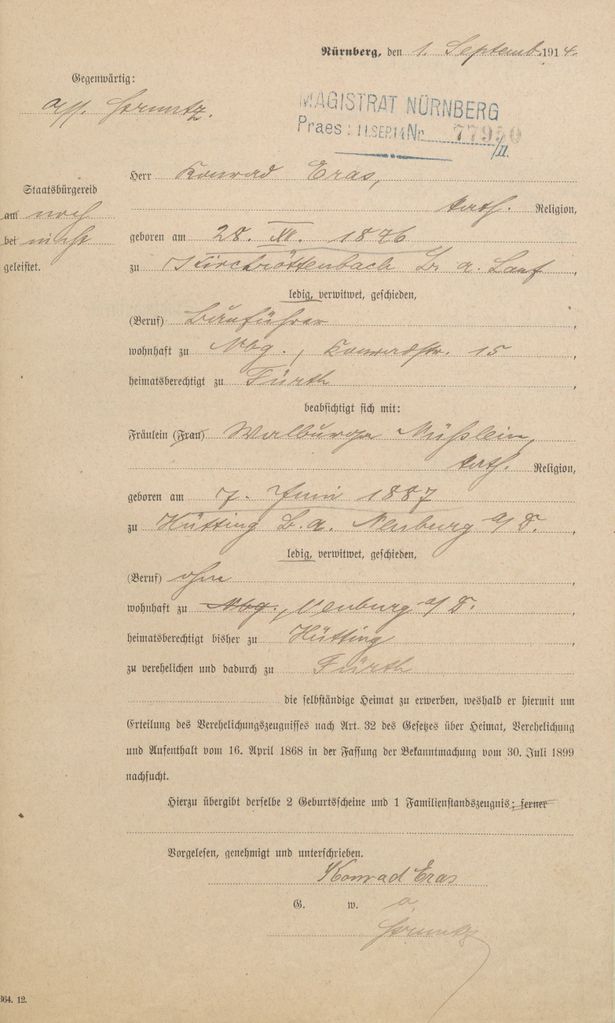 Nürnberg, den 1. Septemb. 1914.
Gegenwärtig:
MAGISTRAT NÜRNBERG
Praes: 11.SEP.14 Nr. 77950
/II.
Herr Konrad Eras,
kath. Religion,
Staatsbürgereid
am noch
bei nicht
geleistet.
geboren am 28. XI. 1876
zu Kirchröttenbach B. a. Lauf,
ledig, verwitwet, geschieden,
(Beruf) Bauführer,
wohnhaft zu Nbg., Konradstr. 15,
heimatsberechtigt zu Fürth,
beabsichtigt sich mit:
Fräulein (Frau) Walburga
kath. Religion,
geboren am 7. Juni 1887
zu Hütting B. a. Neuburg a/D.,
ledig, verwitwet, geschieden,
(Beruf) ohne,
wohnhaft zu Nbg., Neuburg a/D.,
heimatsberechtigt bisher zu Hütting
zu verehelichen und dadurch zu Fürth
die selbständige Heimat zu erwerben, weshalb er hiermit um
Erteilung des Verehelichungszeugnisses nach Art. 32 des Gesetzes über Heimat, Verehelichung
und Aufenthalt vom 16. April 1868 in der Fassung der Bekanntmachung vom 30. Juli 1899
nachsucht.
Hierzu übergibt derselbe 2 Geburtscheine und 1 Familienstandszeugnis; ferner
Vorgelesen, genehmigt und unterschrieben.
Konrad Eras
G. w. o.
364. 12.